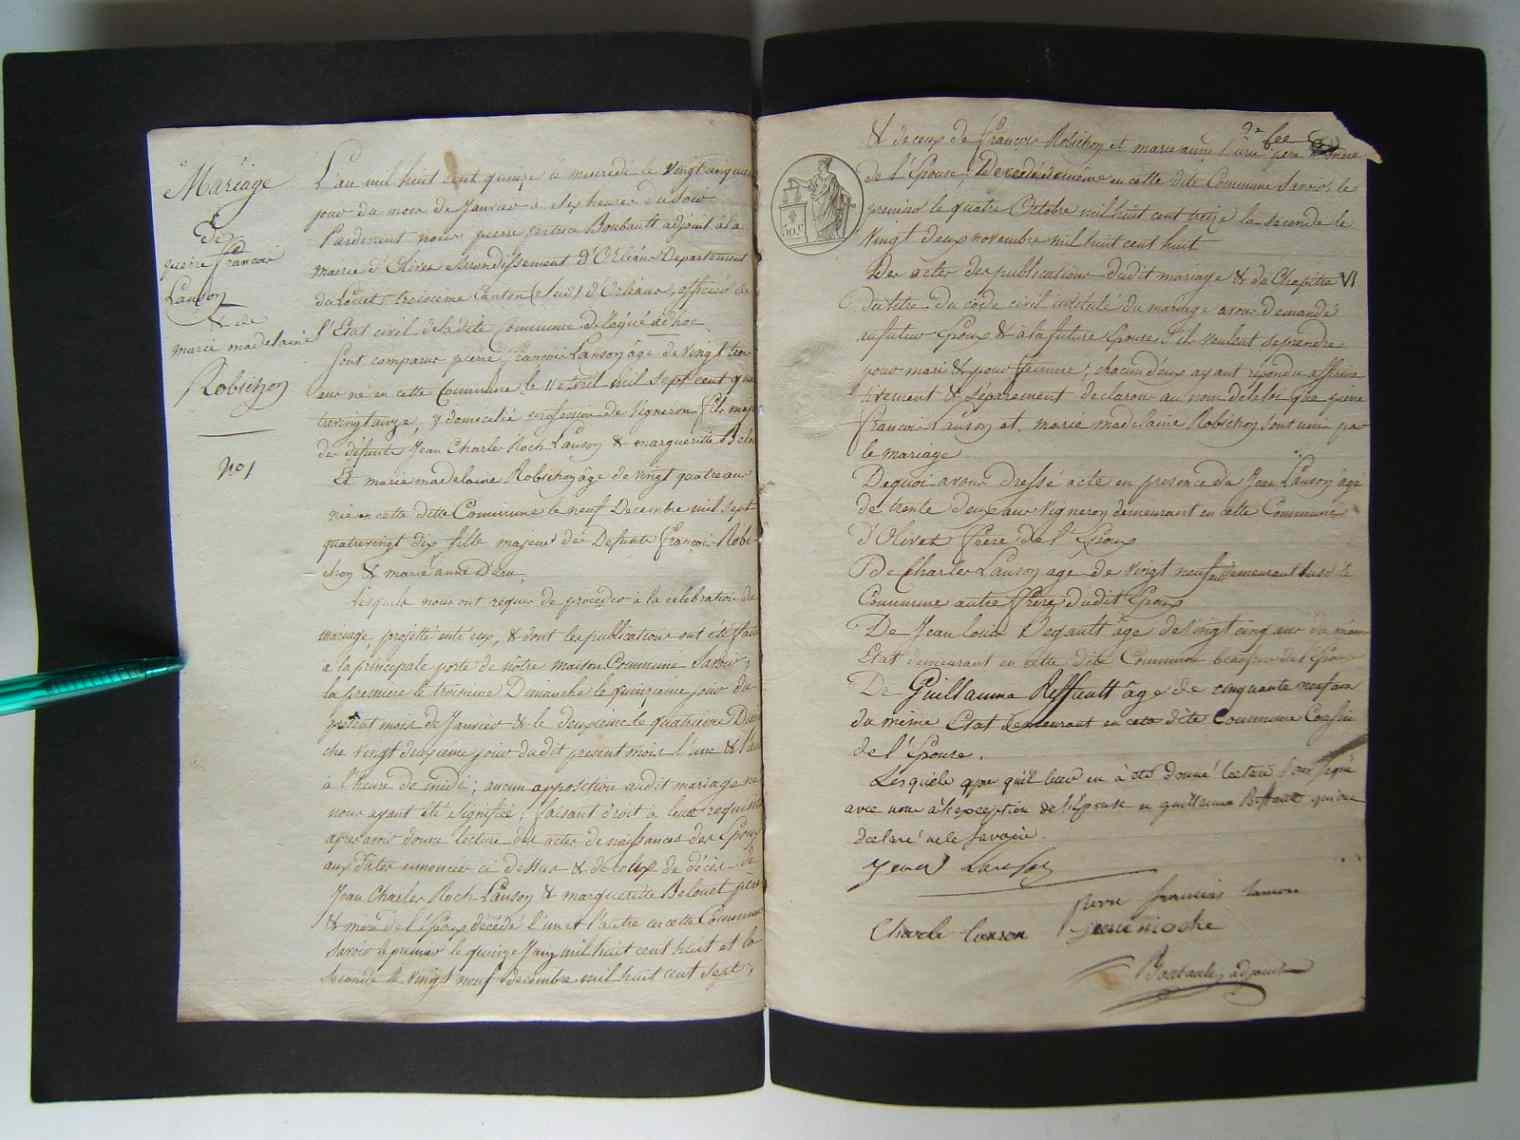 Mariage
De
pierre françois
Lanson
& de
marie madelaine
Robichon
No 1
L'an mil huit cent quinze le mercredi le vingt cinquie
jour du mois de Janvier a six heures du soir
Pardevant nous pierre Boubault adjoint à la
mairie d'Olivet arrondissement D'Orléans Departement
du Loiret troisieme Canton (sud) d'Orleans, officier de
l'Etat civil de la dite Commune delégué ad hoc
sont comparus pierre françois Lanson âgé de vingt trois
ans né en cette Commune le avril mil sept cent qua
trevingt onze, y domicilié profession de vigneron fils maj
de défunts Jean Charle Roch Lanson & marguerite Belou
Et marie madelaine Robichon âgé de vingt quatre ans
née en cette ditte Commune le neuf Decembre mil sept
quatrevingt dix fille majeure de Defunts françois Robi
chon & marie anne
Lesquels nous ont requis de proceder à la celebration du
mariage projetté entre eux, & dont les publications ont été faite
a la principale porte de nôtre maison Commune Savoir;
la premiere le troisieme Dimanche le quinzieme jour du
present mois de Janvier & le deuxieme le quatrieme Diman
che vingt deuxieme jour dudit present mois l'une & l'autre
à l'heure de midi; aucun opposition audit mariage ne
nous ayant été signifiée; faisant droit a leur requisition
apres avoir donné lecture des actes de naissances des Epoux
aux dates enoncées ci dessus & de ceux de décès de
Jean Charles Roch Lanson & marguerite Belouet père
& mère de l'Epoux décédé l'un et l'autre en cette Commune
savoir le premier le quinze mil huit cent huit et la
seconde le vingt neuf décembre mil huit cent sept;
& de ceux de françois Robichon et marie anne père & mère
de l'Epouse; Decedés de même en cette dite Commune savoir le
premier le quatre Octobre mil huit cent treize la seconde le
vingt deux novembre mil huit cent huit
Des actes des publications dudit mariage & du Chapitre VI
du titre du code civil intitulé du mariage avons demandé
au futur Epoux & à la future Epouse s'ils veulent se prendre
pour mari & pour femme; chacun d'eux ayant répondu affirma
tivement & séparement declarons au nom de la loi que pierre
françois Lanson et marie madelaine Robichon sont unis par
le mariage
De quoi avons dressé acte en presence de Jean Lanson âgé
de trente deux ans vigneron demeurant en cette Commune
D'Olivet frère de l'Epoux
De Charles Lanson age de vingt neuf demeurant susdite
Commune autre frère dudit Epoux
De Jean louis Degault âge de vingt cinq ans du même
Etat demeurant en cette dite Commune beaufrere de l'Epoux
De Guillaume Reffault âge de cinquante neuf ans
du même Etat demeurant en cette dite Commune Cousin
de l'Epouse.
Lesquels apres qu'il leur en a été donné lecture ont signé
avec nous à l'exception de l'épouse et guillaume Reffault qui ont
declaré ne le savoir
Jean Lanson
pierre francois lanson
Charle lanson
Boubault adjoint